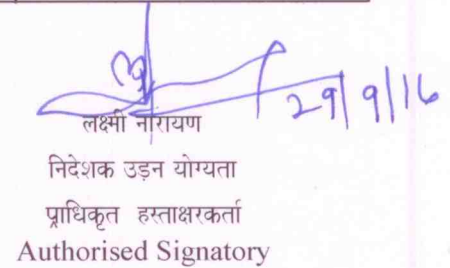 29/9/16
लक्ष्मी नारायण
निदेशक उड़न योग्यता
प्राधिकृत हस्ताक्षरकर्ता
Authorised Signatory